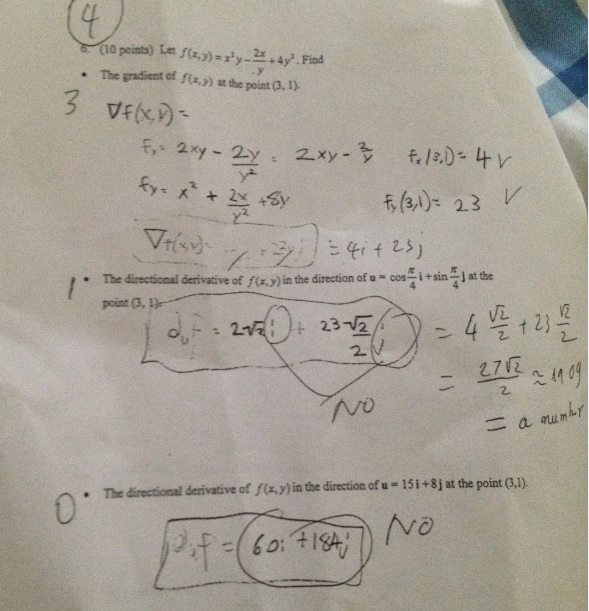 4
6. (10 points) Let f(x,y) = x²y - 2x/y + 4y². Find
• The gradient of f(x,y) at the point (3, 1).
3 ∇f(x,y) =
fx = 2xy - 2y/y² = 2xy - 2/y fx(3,1) = 4 √
fy = x² + 2x/y² + 8y fy(3,1) = 23 √
∇f(x,y) = + 23j = 4i + 23j
1 • The directional derivative of f(x,y) in the direction of u = cos π/4 i + sin π/4 j at the
point (3, 1).
duf = 2√2 i + 23√2/2 j = 4 √2/2 + 23 √2/2
= 27√2/2 ≈ 19.09
NO
= a number
0 • The directional derivative of f(x,y) in the direction of u = 15i + 8j at the point (3,1).
duf = 60i + 184j NO